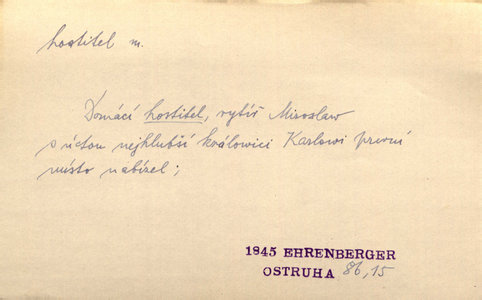 hostitel m.
Domácí hostitel, rytíř Miroslaw
s úctou nejhlubší králowici Karlowi první
místo nabízel;
1845 EHRENBERGER
OSTRUHA 86,15